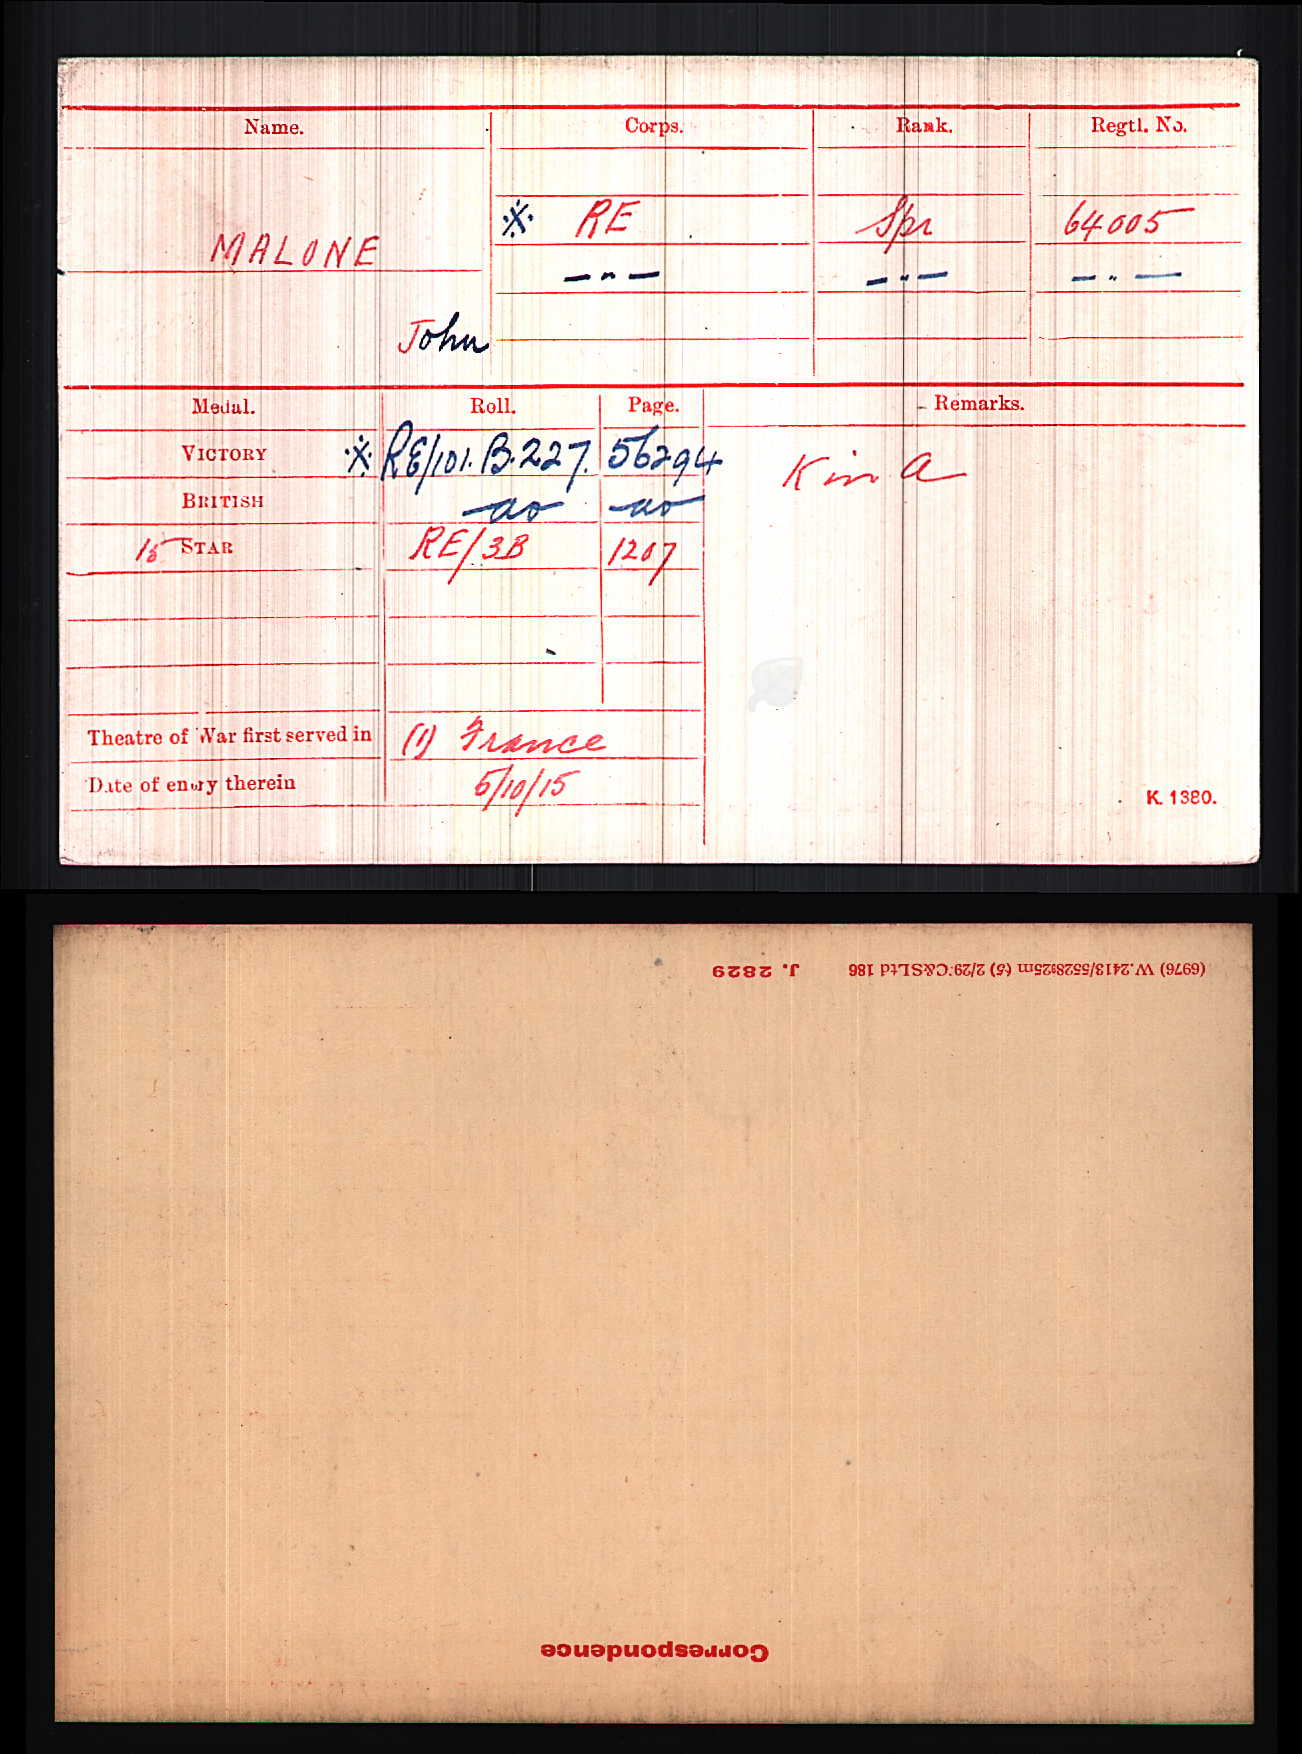 Name. Corps. Rank. Regtl. No.
MALONE
John
※ RE Spr 64005
— " — — " — — " —
Medal. Roll. Page. Remarks.
VICTORY ※ RE/101.B.227. 56294
BRITISH —do— —do—
15 STAR RE/3B 1207
K in A
Theatre of War first served in (1) France
Date of entry therein 5/10/15
K. 1380.
J. 2829 (6976) W.2413/5528 25m (5) 2/29 C&SLtd 186
Correspondence